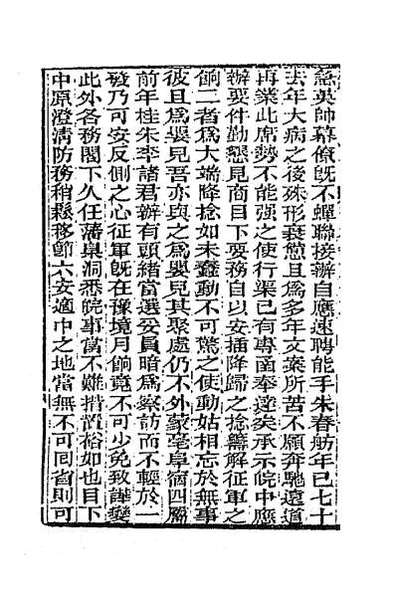 急英師幕僚旣不蟬聯接辦自應速聘能手朱春舫年已七十
去年大病之後殊形衰憊且爲多年文案所苦不願奔馳遠道
再業此席勢不能强之使行渠已有專函奉達矣承示皖中應
辦要件勤懇見商目下要務自以安插降歸之捻籌解征軍之
餉二者爲大端降捻如未蠢動不可驚之使動姑相忘於無事
彼且爲嬰兒吾亦與之爲嬰兒其聚處仍不外蒙亳阜宿四屬
前年桂朱李諸君辦有頭緒當選妥員暗爲察訪而不輕於一
發乃可安反側之心征軍旣在豫境月餉竟不可少免致譁變
此外各務閣下久任藩臬洞悉皖事當不難措置裕如也目下
中原澄淸防務稍鬆移節六安適中之地當無不可同舊則可